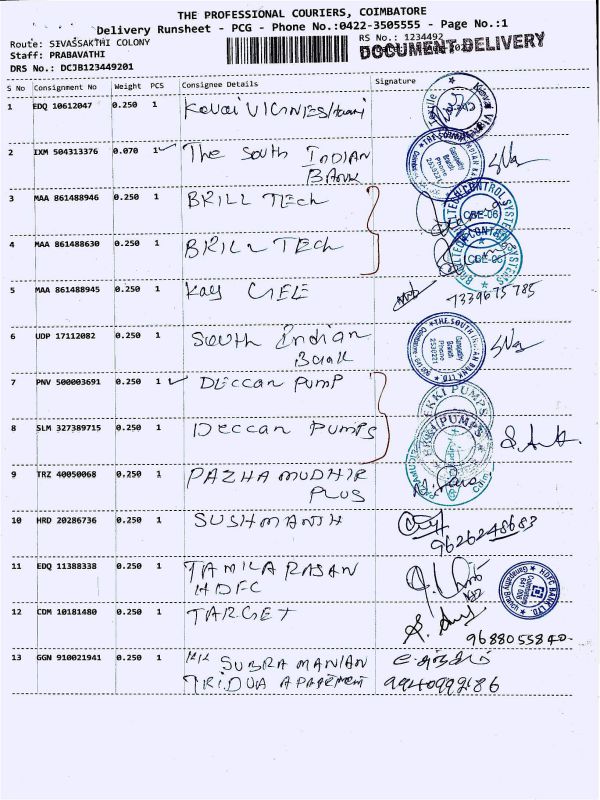 THE PROFESSIONAL COURIERS, COIMBATORE
Delivery Runsheet - PCG - Phone No.:0422-3505555 - Page No.:1
Route: SIVASSAKTHI COLONY
RS No.: 1234492
DOCUMENT DELIVERY
Staff: PRABAVATHI
DRS No.: DCJB123449201
S No Consignment No Weight PCS Consignee Details Signature
1 EDQ 10612047 0.250 1 Kovai
2 IXM 504313376 0.070 1 The South INDIAN
BANK
3 MAA 861488946 0.250 1 BRILL TECH
4 MAA 861488630 0.250 1 BRILL TECH
CBE-06
CBE-06
5 MAA 861488945 0.250 1 Kay
7339675785
6 UDP 17112082 0.250 1 South Indian
Bank
7 PNV 500003691 0.250 1 DECCAN PUMP
8 SLM 327389715 0.250 1 DECCAN PUMPS
EKKI PUMPS
EKKI PUMPS
9 TRZ 40050068 0.250 1 PAZHAMUDHIR
PLUS
10 HRD 20286736 0.250 1 SUSHMANTH
9626248683
11 EDQ 11388338 0.250 1 TAMILARASAN
HDFC
HDFC BANK LTD.
12 CDM 10181480 0.250 1 TARGET
9688055840
13 GGN 910021941 0.250 1 KK SUBRAMANIAN
TRIDUA APARTMENT 9940992186